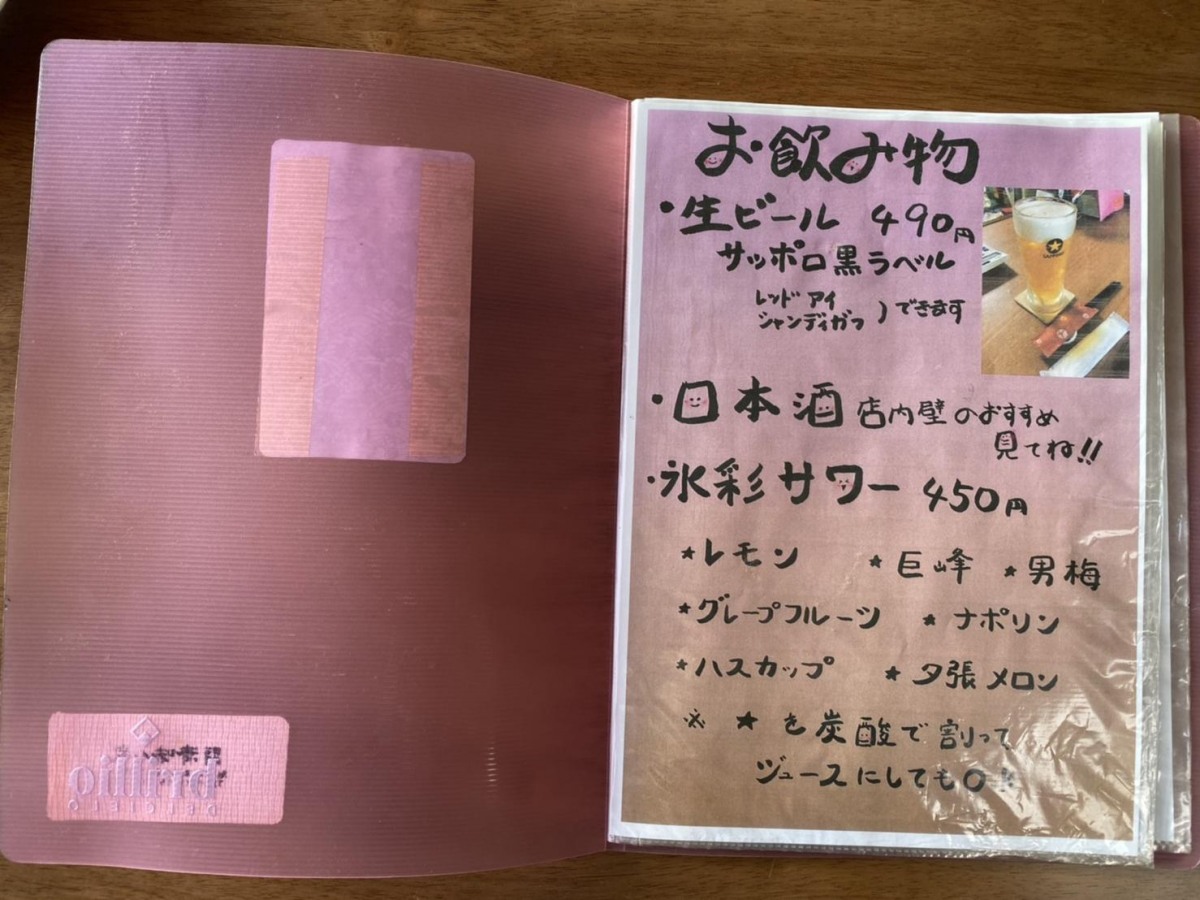 お飲み物
・生ビール 490円
サッポロ黒ラベル
レッドアイ
シャンディガフ ）できます
・日本酒 店内壁のおすすめ
見てね!!
・氷彩サワー 450円
★レモン ★巨峰 ★男梅
★グレープフルーツ ★ナポリン
★ハスカップ ★夕張メロン
※ ★を炭酸で割って
ジュースにしてもOK
brillio
DELCIELO